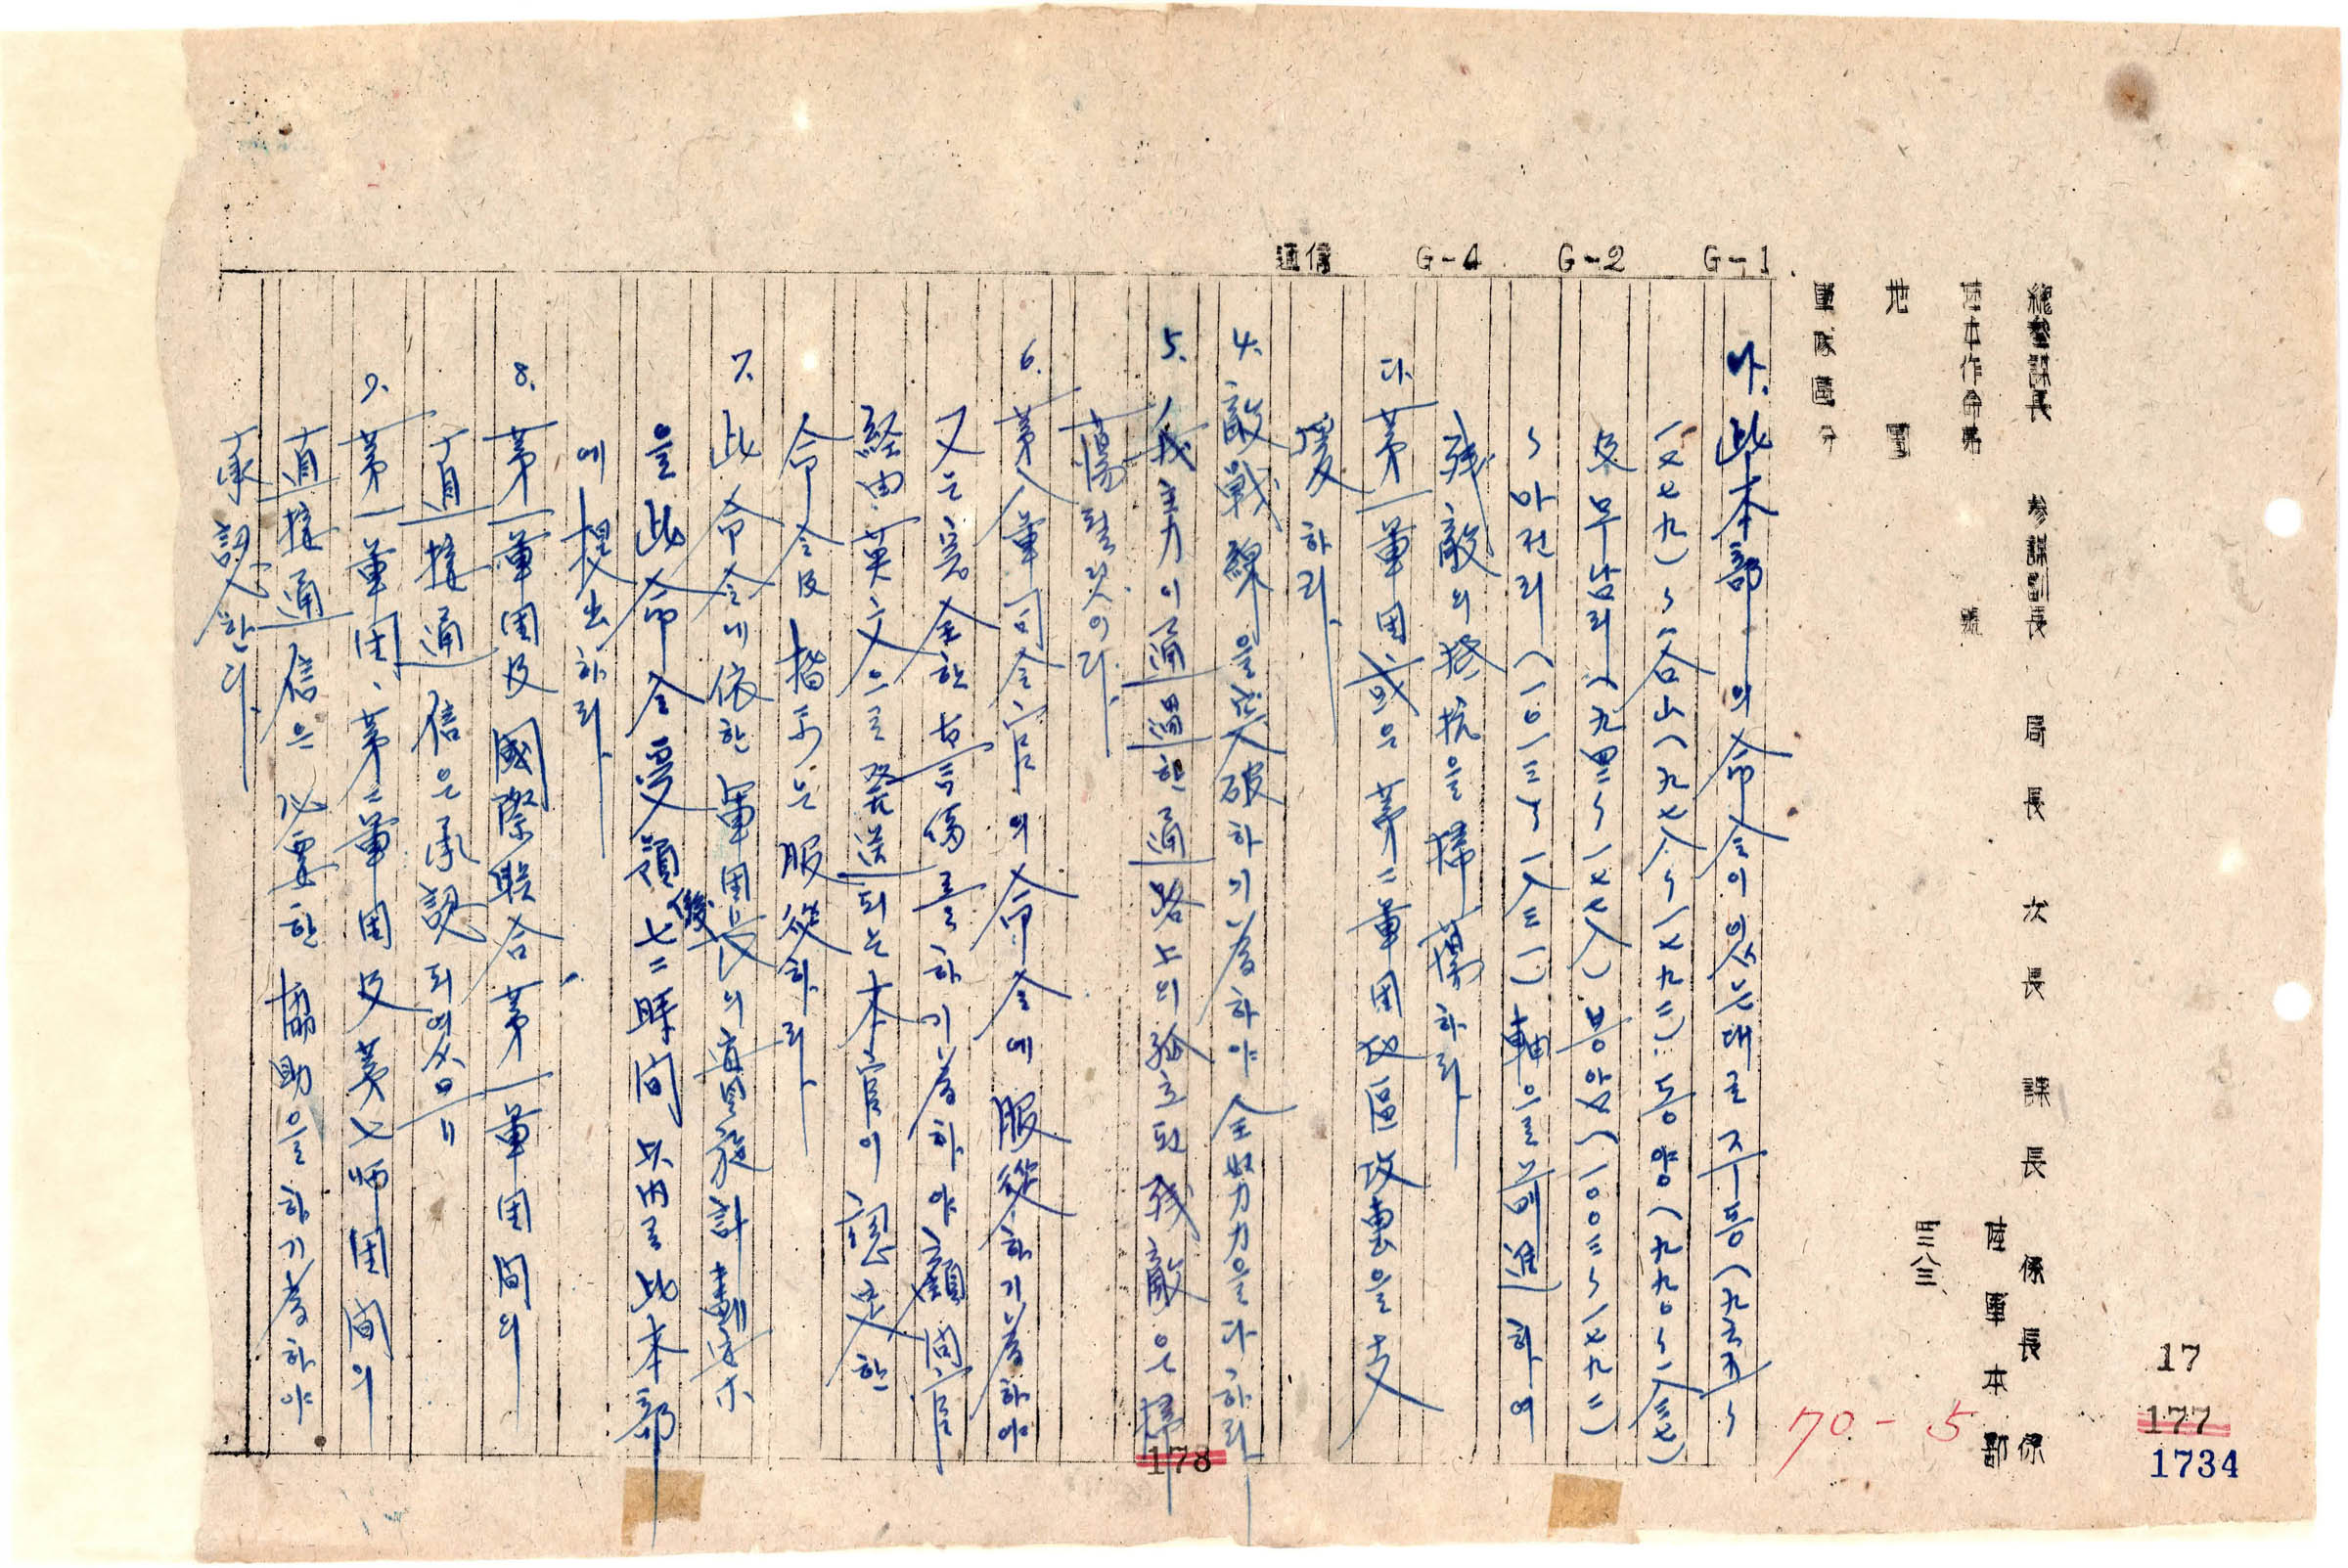 總參謀長 參謀副長 局長 次長 課長 係長 係
陸本作命第 號
陸軍本部
地圖
三八三
軍隊區分
G-1
G-2
G-4
通信
나. 此本部의 命令이 있는대로 주등(九六五五〜
一七七九)〜谷山(九七八〜一七九三): 동양(九九〇〜一八三七)
及 무남리(九四二〜一七七八) 봉암(一〇〇三〜一七九二)
〜마전리(一〇一三〜一八三一)軸으로 前進하여
残敵의 抵抗을 掃蕩하라.
다. 第一軍団 或은 第二軍団 地區 攻擊을 支
援하라.
4. 敵戰線을 突破하기 爲하야 全努力을 다하라.
5. 我主力이 通過한 通路上의 孤立된 残敵은 掃
蕩할 것이다.
6. 第八軍司令官의 命令에 服從하기 爲하야
又는 完全한 등 하기 爲하야 顧問官
経由 英文으로 發送되는 本官이 한
命令及 指示는 服從하라.
7. 此命令에 依한 軍団長의 實施計劃
을 此命令受領後 七二時間以内로 此本部
에 提出하라.
8. 第一軍団及 國際聯合 第一軍団間의
直接通信은 承認되여
9. 第一軍団、第二軍団及 第七師団間의
直接通信은 必要한 協助을 하기 爲하야
承認한다.
70-5
17
177
1734
178